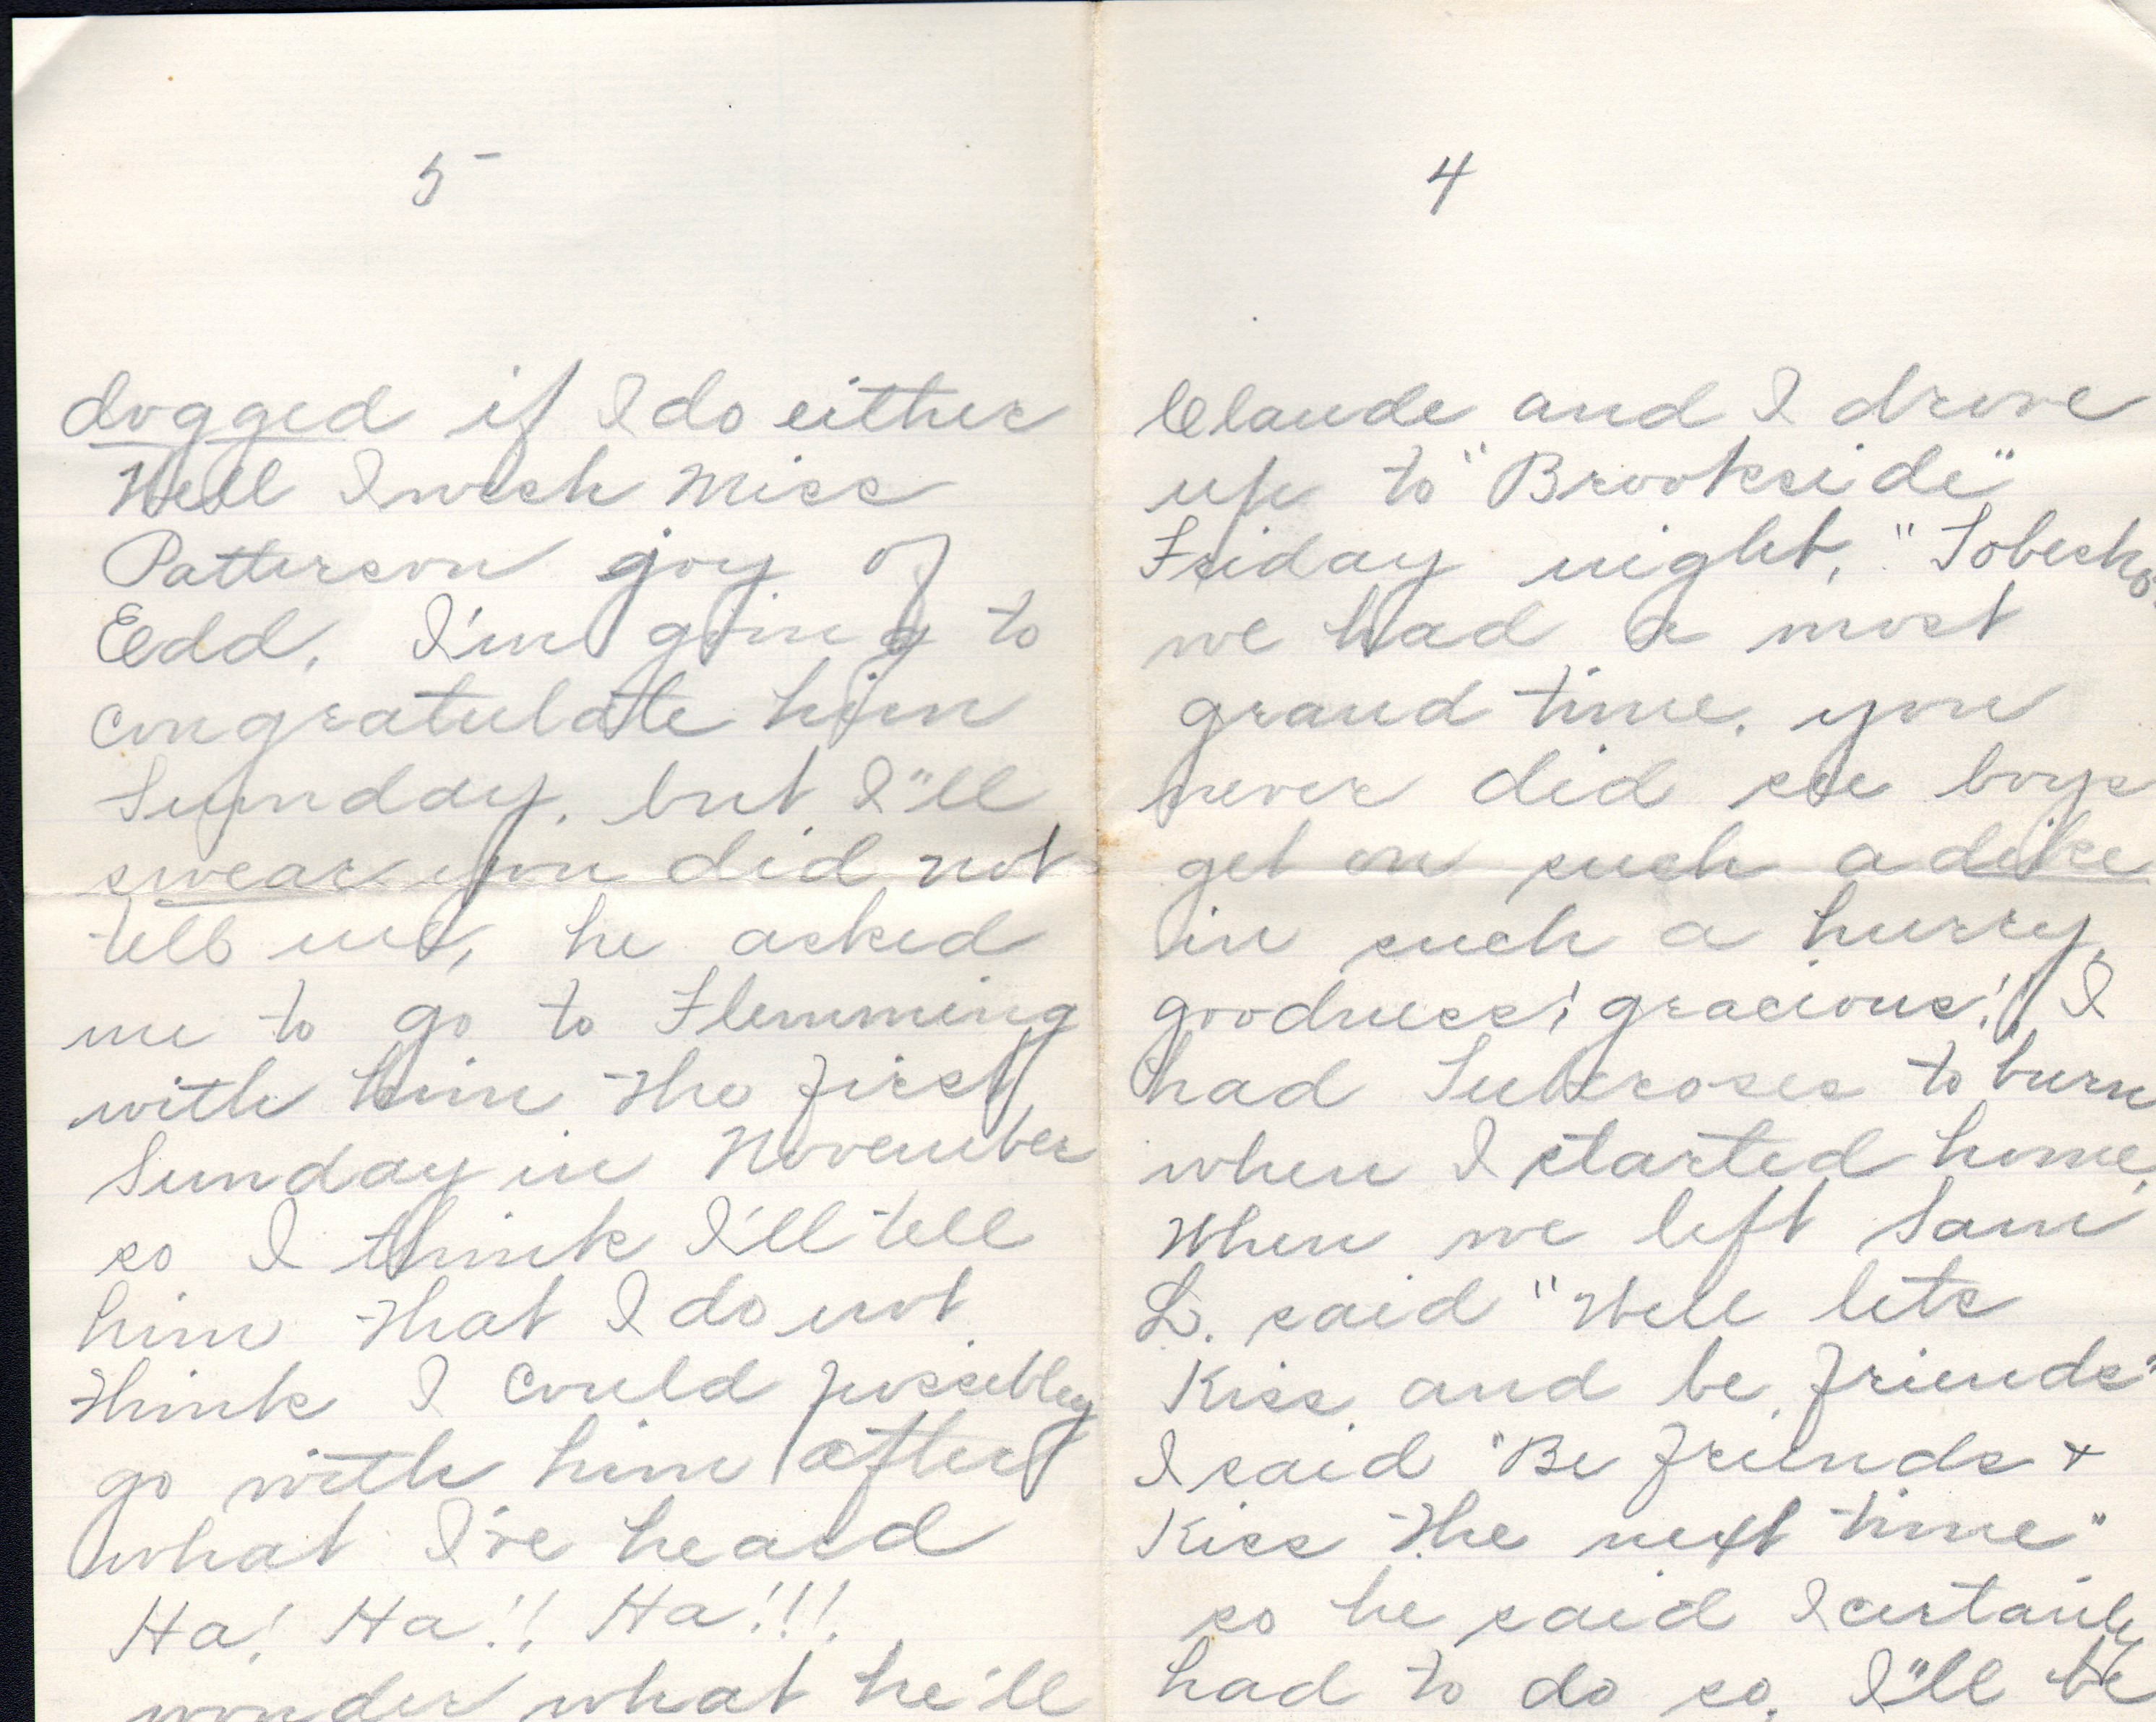 4
Claude and I drove
up to "Brookside"
Friday night, "
we had a most
grand time. you
never did see boys
get on such a dike
in such a hurry,
goodness! gracious!! I
had Tuberoses to burn
when I started home.
When we left Sam
L. said "Well lets
Kiss and be friends"
I said "Be friends +
Kiss the next time"
so he said I certainly
had to do so. I"ll be
5
dogged if I do either
Well I wish Miss
Patterson goy of
Edd. I'm going to
congratulate him
Sunday. but I"ll
swear you did not
tell me, he asked
me to go to Flemming
with him the first
Sunday in November
so I think I'll tell
him that I do not
think I could possibley
go with him after
what I've heard
Ha! Ha!! Ha!!!
wonder what he'll